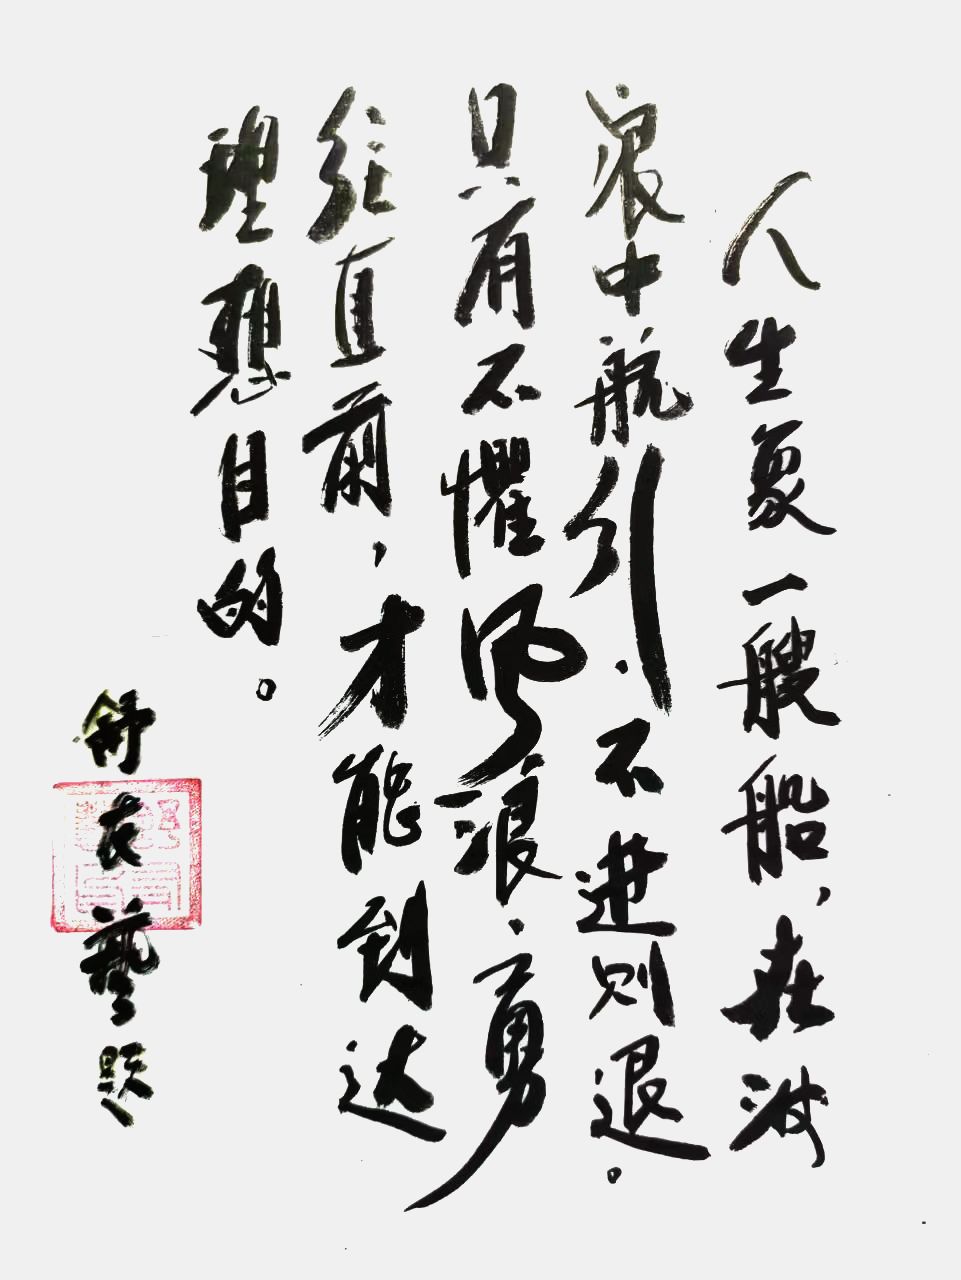 人生象一艘船，在波
浪中航引.不进则退。
只有不惧风浪.勇
往直前，才能到达
理想目的。
舒衣藝题